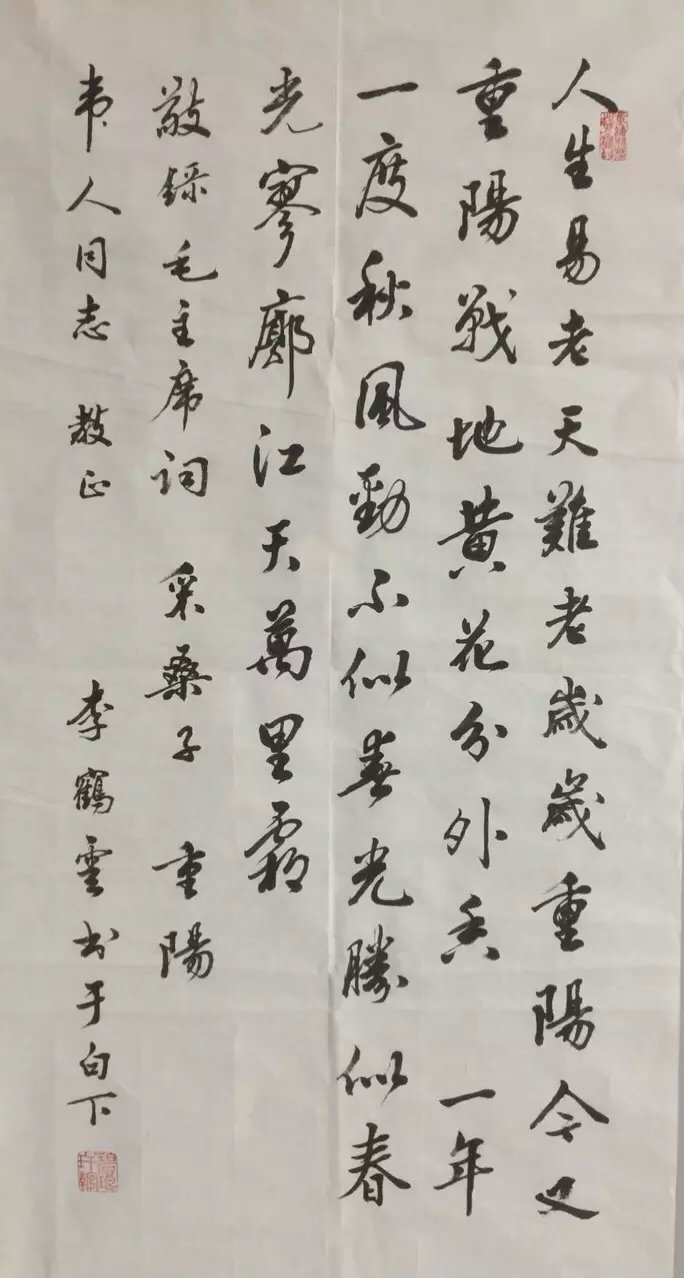 人生易老天難老歲歲重陽今又
重陽戰地黃花分外香 一年
一度秋風勁不似春光勝似春
光寥廓江天萬里霜
敬錄毛主席詞 采桑子 重陽
韦人同志 教正 李鶴雲书于白下